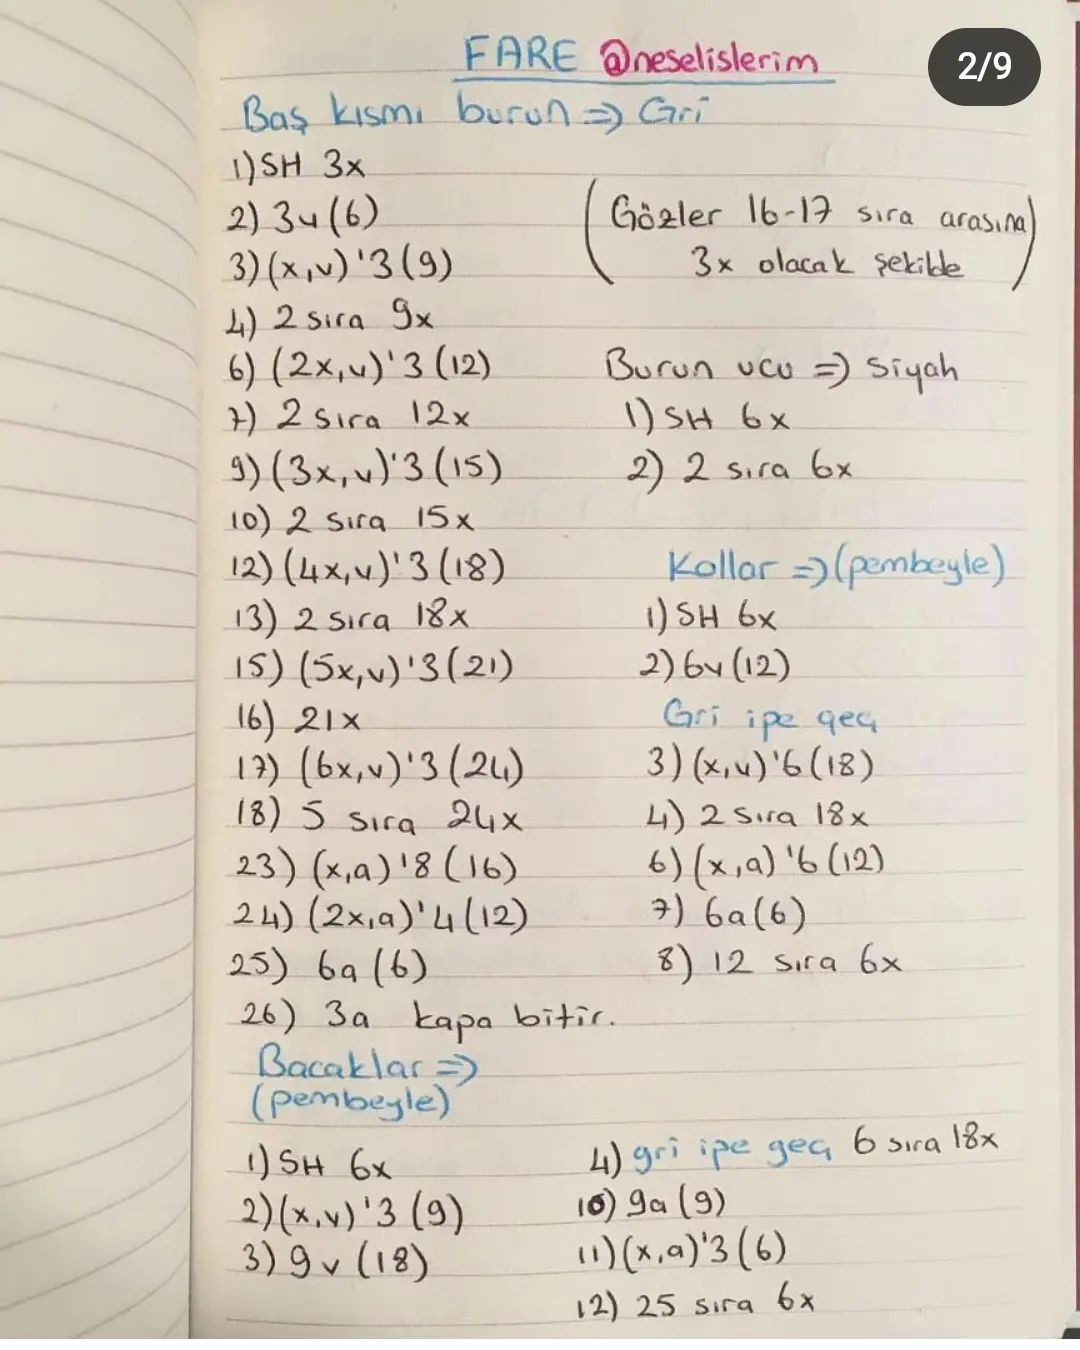 FARE @neselislerim
2/9
Baş kısmı burun => Gri
1) SH 3x
2) 3v (6)
3) (x,v)'3 (9)
4) 2 sıra 9x
6) (2x,v)'3 (12)
7) 2 sıra 12x
9) (3x,v)'3 (15)
10) 2 sıra 15x
12) (4x,v)'3 (18)
13) 2 sıra 18x
15) (5x,v)'3 (21)
16) 21x
17) (6x,v)'3 (24)
18) 5 sıra 24x
23) (x,a)'8 (16)
24) (2x,a)'4 (12)
25) 6a (6)
26) 3a kapa bitir.
(Gözler 16-17 sıra arasına
3x olacak şekilde)
Burun ucu => Siyah
1) SH 6x
2) 2 sıra 6x
Kollar => (pembeyle)
1) SH 6x
2) 6v (12)
Gri ipe geç
3) (x,v)'6 (18)
4) 2 sıra 18x
6) (x,a)'6 (12)
7) 6a (6)
8) 12 sıra 6x
Bacaklar =>
(pembeyle)
1) SH 6x
2) (x,v)'3 (9)
3) 9v (18)
4) gri ipe geç 6 sıra 18x
10) 9a (9)
11) (x,a)'3 (6)
12) 25 sıra 6x